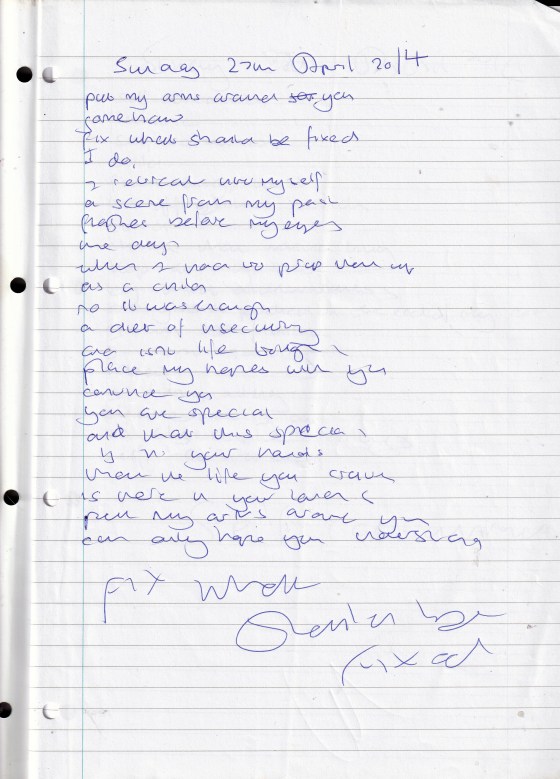 Sunday 27th April 2014
put my arms around you
somehow
fix what should be fixed
I do,
I retreat into myself
a scene from my past
flashes before my eyes
the days
when I had to prop them up
as a child
no it was enough
a diet of insecurity
and isn't life tough
place my hopes with you
convince you
you are special
and that this special
is in your hands
that the life you crave
is here in your
put my arms around you
can only hope you understand
fix what
should be
fixed